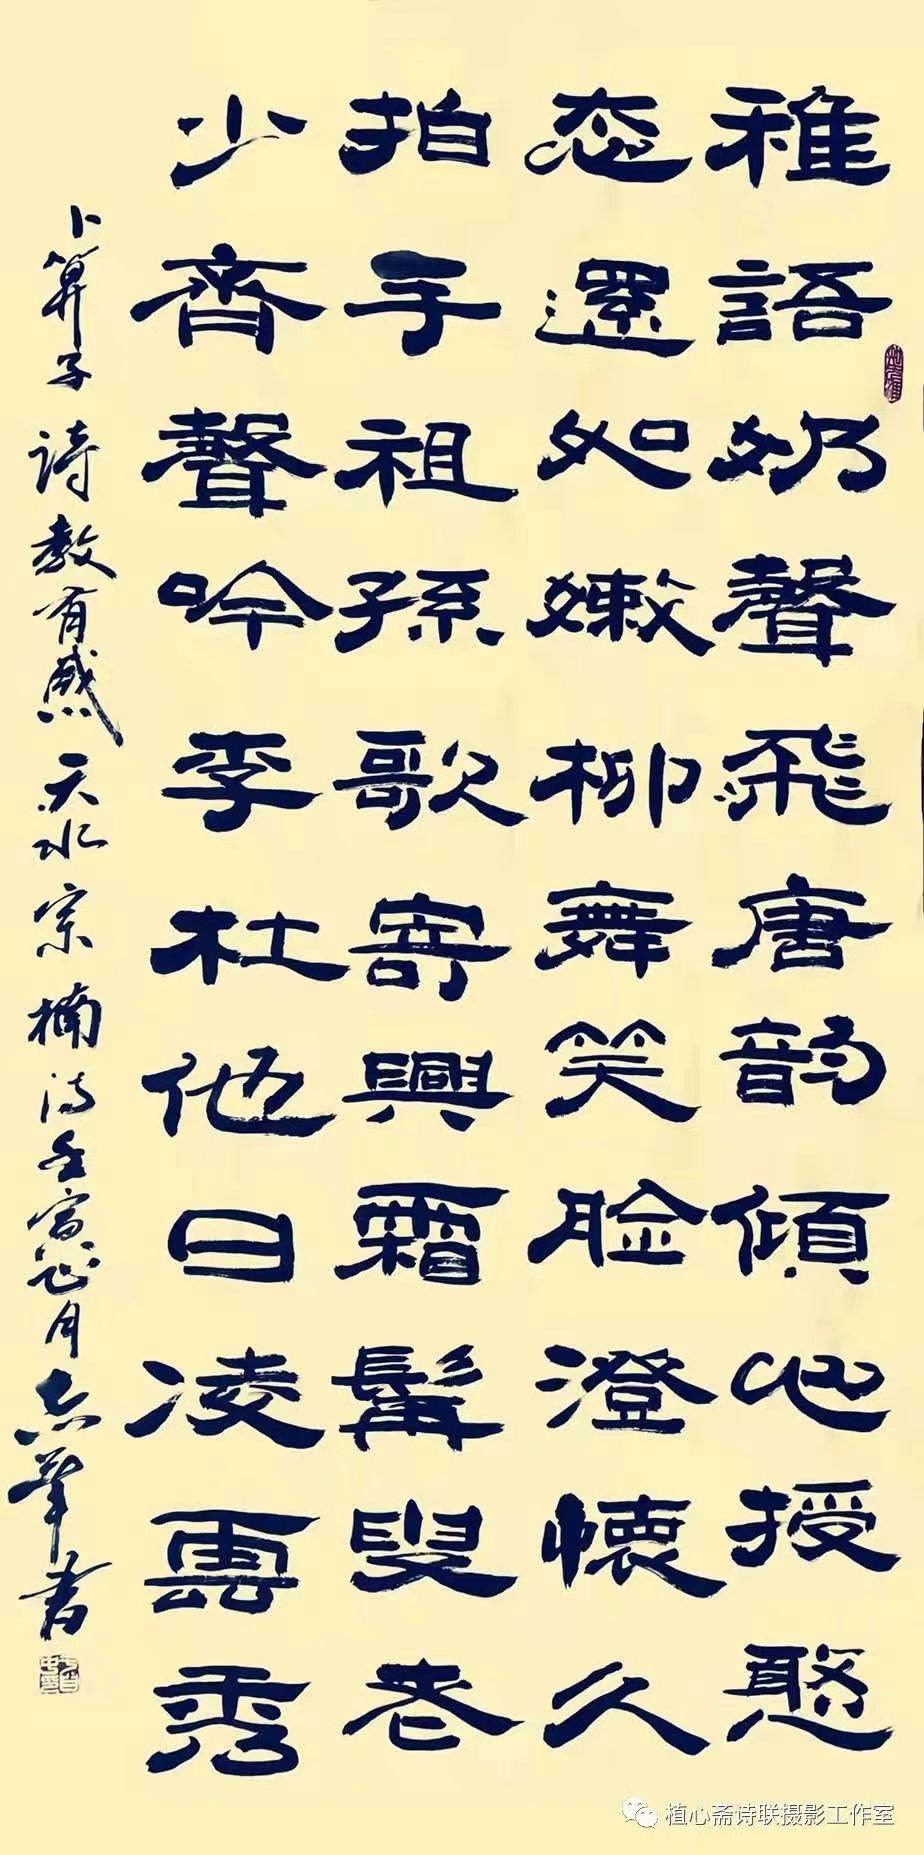 稚語奶聲飛唐韵傾心授憨
态還如嫩柳舞笑脸澄懷久
拍手祖孫歌寄興霜髯叟老
少齊聲吟李杜他日凌雲秀
卜算子 诗教有感 天水宗楠诗壬寅正月志书
植心斋诗联摄影工作室